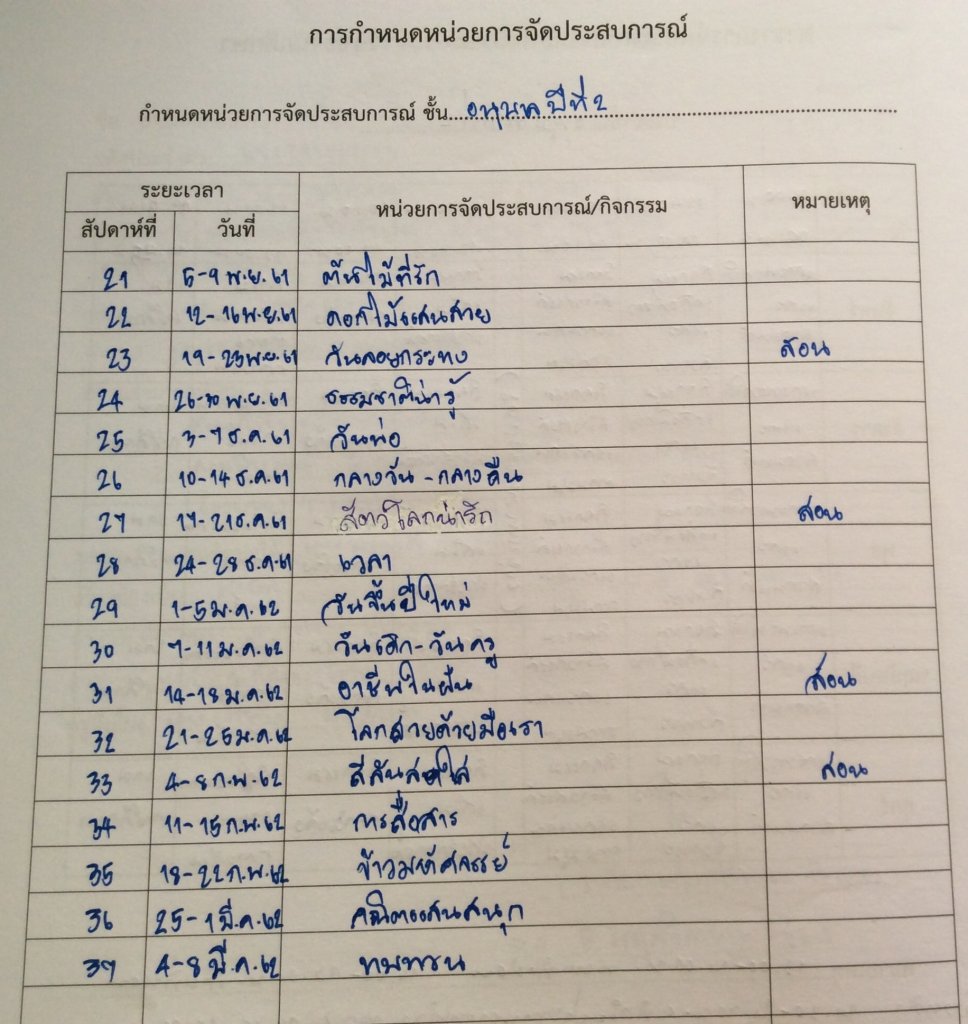 การกำหนดหน่วยการจัดประสบการณ์
กำหนดหน่วยการจัดประสบการณ์ ชั้น....อนุบาลปีที่ 2....
ระยะเวลา หน่วยการจัดประสบการณ์/กิจกรรม หมายเหตุ
สัปดาห์ที่ วันที่
21 5-9 พ.ย. 61 ต้นไม้ที่รัก
22 12-16 พ.ย. 61 ดอกไม้แสนสวย
23 19-23 พ.ย. 61 วันลอยกระทง สอน
24 26-30 พ.ย. 61 ธรรมชาติน่ารู้
25 3-7 ธ.ค. 61 วันพ่อ
26 10-14 ธ.ค. 61 กลางวัน - กลางคืน
27 17-21 ธ.ค. 61 สัตว์โลกน่ารัก สอน
28 24-28 ธ.ค. 61 เวลา
29 1-5 ม.ค. 62 วันขึ้นปีใหม่
30 7-11 ม.ค. 62 วันเด็ก-วันครู
31 14-18 ม.ค. 62 อาชีพในฝัน สอน
32 21-25 ม.ค. 62 โลกสวยด้วยมือเรา
33 4-8 ก.พ. 62 สีสันสดใส สอน
34 11-15 ก.พ. 62 การสื่อสาร
35 18-22 ก.พ. 62 ข้าวมหัศจรรย์
36 25-1 มี.ค. 62 คณิตแสนสนุก
37 4-8 มี.ค. 62 ทบทวน